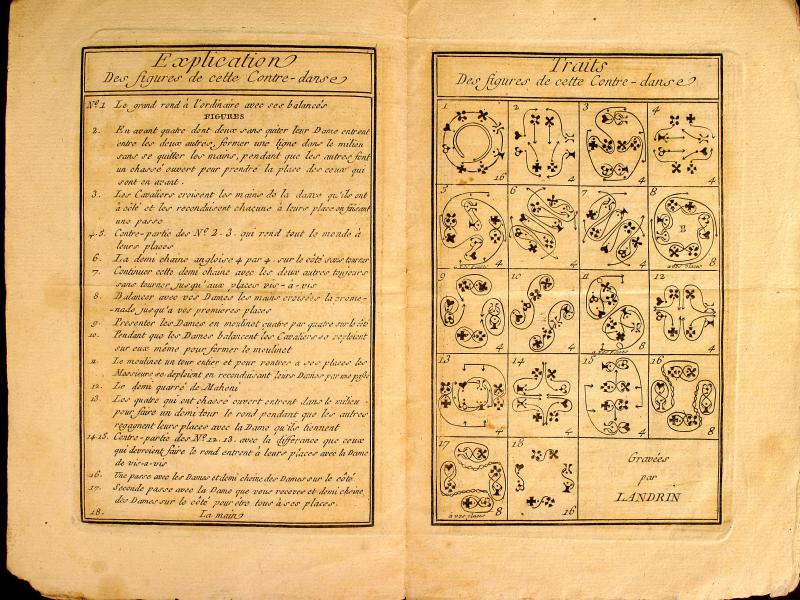 Explication
Des figures de cette Contre-danse
Nº. 1 Le grand rond à l'ordinaire avec ses balancés
FIGURES
2. En avant quatre dont deux sans quiter leur Dame entrent
entre les deux autres, former une ligne dans le milieu
sans se quitter les mains, pendant que les autres font
un chassé ouvert pour prendre la place des ceux qui
sont en avant.
3. Les Cavaliers croisent les mains de la dame qu'ils ont
à côté et les reconduisent chacuns à leurs place en faisant
une passe
4.5. Contre-partie des Nº 2.3. qui rend tout le monde à
leurs places
6. La demi chaine angloise 4 par 4. sur le côté sans tourner
7. Continuer cette demi chaine avec les deux autres toujours
sans tourner jusqu'aux places vis-à-vis
8. Balancer avec vos Dames les mains croisées la prome-
-nade jusqu'a vos premieres places
9. Presenter les Dames en moulinet quatre par quatre sur le côté
10. Pendant que les Dames balancent les Cavaliers se deploient
sur eux même pour former le moulinet
11. Le moulinet un tour entier et pour rentrer a ses places les
Messieurs se deploient en reconduisant leurs Dames par une passe
12. Le demi quarré de Mahoni
13. Les quatre qui ont chassé ouvert entrent dans le milieu
pour faire un demi tour le rond pendant que les autres
regagnent leurs places avec la Dame qu'ils tiennent
14.15. Contre-partie des Nº. 12.13. avec la différance que ceux
qui devroient faire le rond entrent à leurs places avec la Dame
de vis-a-vis
16. Une passe avec les Dames et demi cheine des Dames sur le côté
17. Seconde passe avec la Dame que vous recevés et demi cheine
des Dames sur le côté pour être tous à ses places.
18. La main
Traits
Des figures de cette Contre-danse
1 16
2 4
3 4
4 4
5 à vos places 4
6 4
7 4
8 B à vos places 8
9 4
10 4
11 à vos places 4
12 4
13 4
14 4
15 4
16 8
17 à vos places 8
18 16
Gravées
par
LANDRIN